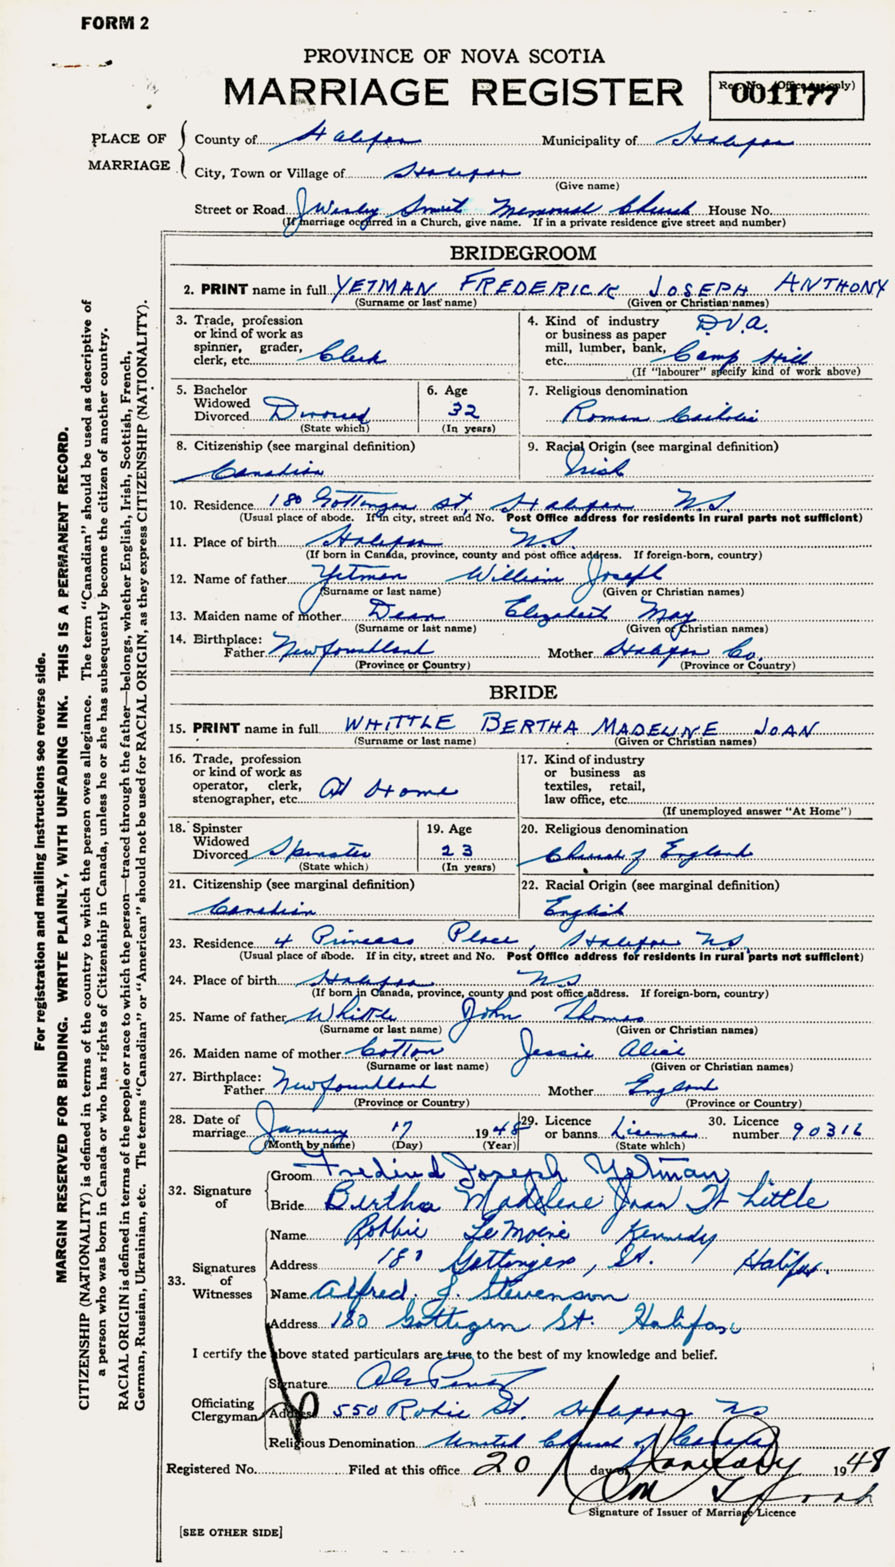 FORM 2
PROVINCE OF NOVA SCOTIA
MARRIAGE REGISTER
Reg. No. (Office use only)
001177
PLACE OF MARRIAGE
County of Halifax Municipality of Halifax
City, Town or Village of Halifax
(Give name)
Street or Road J Wesley Smith Memorial Church House No.
(If marriage occurred in a Church, give name. If in a private residence give street and number)
BRIDEGROOM
2. PRINT name in full YETMAN FREDERICK JOSEPH ANTHONY
(Surname or last name) (Given or Christian names)
3. Trade, profession or kind of work as spinner, grader, clerk, etc. Clerk
4. Kind of industry or business as paper mill, lumber, bank, etc. D.V.A. Camp Hill
(If "labourer" specify kind of work above)
5. Bachelor Widowed Divorced Divorced
(State which)
6. Age 32
(In years)
7. Religious denomination
Roman Catholic
8. Citizenship (see marginal definition)
Canadian
9. Racial Origin (see marginal definition)
Irish
10. Residence 180 Gottingen St, Halifax N.S.
(Usual place of abode. If in city, street and No. Post Office address for residents in rural parts not sufficient)
11. Place of birth Halifax N.S.
(If born in Canada, province, county and post office address. If foreign-born, country)
12. Name of father Yetman William Joseph
(Surname or last name) (Given or Christian names)
13. Maiden name of mother Dean Elizabeth May
(Surname or last name) (Given or Christian names)
14. Birthplace: Father Newfoundland Mother Halifax Co.
(Province or Country) (Province or Country)
BRIDE
15. PRINT name in full WHITTLE BERTHA MADELINE JOAN
(Surname or last name) (Given or Christian names)
16. Trade, profession or kind of work as operator, clerk, stenographer, etc. At Home
17. Kind of industry or business as textiles, retail, law office, etc.
(If unemployed answer "At Home")
18. Spinster Widowed Divorced Spinster
(State which)
19. Age 23
(In years)
20. Religious denomination
Church of England
21. Citizenship (see marginal definition)
Canadian
22. Racial Origin (see marginal definition)
English
23. Residence 4 Princess Place, Halifax N.S.
(Usual place of abode. If in city, street and No. Post Office address for residents in rural parts not sufficient)
24. Place of birth Halifax N.S.
(If born in Canada, province, county and post office address. If foreign-born, country)
25. Name of father Whittle John Thomas
(Surname or last name) (Given or Christian names)
26. Maiden name of mother Cotton Jessie Alice
(Surname or last name) (Given or Christian names)
27. Birthplace: Father Newfoundland Mother England
(Province or Country) (Province or Country)
28. Date of marriage January 17 1948
(Month by name) (Day) (Year)
29. Licence or banns License
(State which)
30. Licence number 90316
32. Signature of
Groom Fredrick Joseph Yetman
Bride Bertha Madelene Joan Whittle
33. Signatures of Witnesses
Name Robbie LeMoine Kennedy
Address 180 Gottingen, St. Halifax.
Name Alfred. J. Stevenson
Address 180 Gottigen St. Halifax
I certify the above stated particulars are true to the best of my knowledge and belief.
Officiating Clergyman
Signature
Address 550 Robie St. Halifax NS
Religious Denomination United Church of Canada
Registered No. Filed at this office 20 day of January 1948
Signature of Issuer of Marriage Licence
[SEE OTHER SIDE]
For registration and mailing instructions see reverse side.
MARGIN RESERVED FOR BINDING. WRITE PLAINLY, WITH UNFADING INK. THIS IS A PERMANENT RECORD.
CITIZENSHIP (NATIONALITY) is defined in terms of the country to which the person owes allegiance. The term "Canadian" should be used as descriptive of
a person who was born in Canada or who has rights of Citizenship in Canada, unless he or she has subsequently become the citizen of another country.
RACIAL ORIGIN is defined in terms of the people or race to which the person—traced through the father—belongs, whether English, Irish, Scottish, French,
German, Russian, Ukrainian, etc. The terms "Canadian" or "American" should not be used for RACIAL ORIGIN, as they express CITIZENSHIP (NATIONALITY).